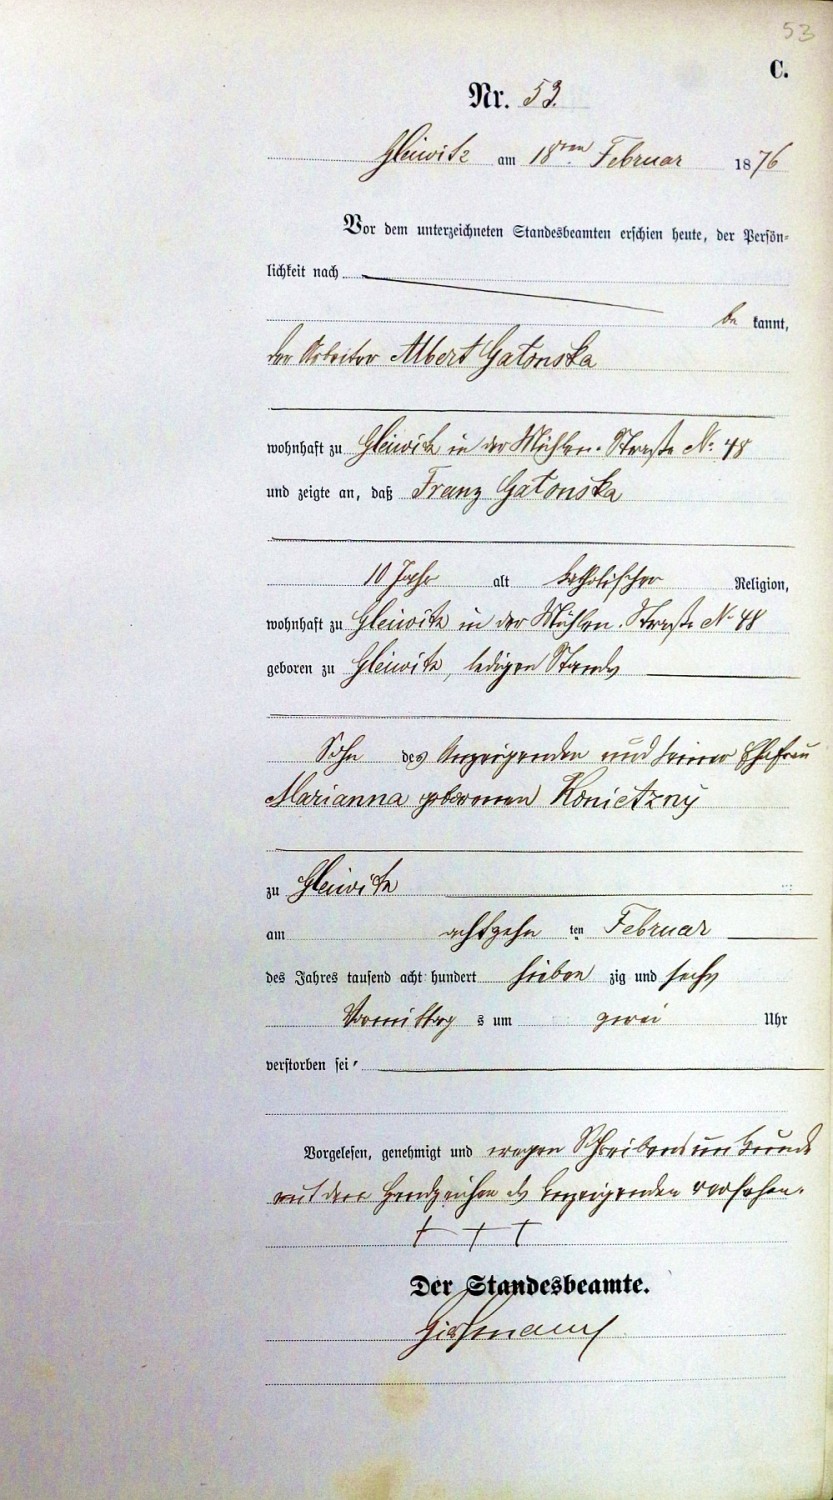 53
C.
Nr. 53.
Gleiwitz am 18ten Februar 1876
Vor dem unterzeichneten Standesbeamten erschien heute, der Persön-
lichkeit nach
be kannt,
der Arbeiter Albert Gatonska
wohnhaft zu Gleiwitz in der Mühlen-Straße No 48
und zeigte an, daß Franz Gatonska
10 Jahr alt katholischer Religion,
wohnhaft zu Gleiwitz in der Mühlen-Straße No 48
geboren zu Gleiwitz, ledigen Stands
Sohn des Anzeigenden und seiner Ehefrau
Marianna geborenen Konietzny
zu Gleiwitz
am achtzehn ten Februar
des Jahres tausend acht hundert sieben zig und sechs
Vormittag s um zwei Uhr
verstorben sei.
Vorgelesen, genehmigt und wegen Schreibensunkunde
mit dem Handzeichen des Anzeigenden versehen.
+ + +
Der Standesbeamte.